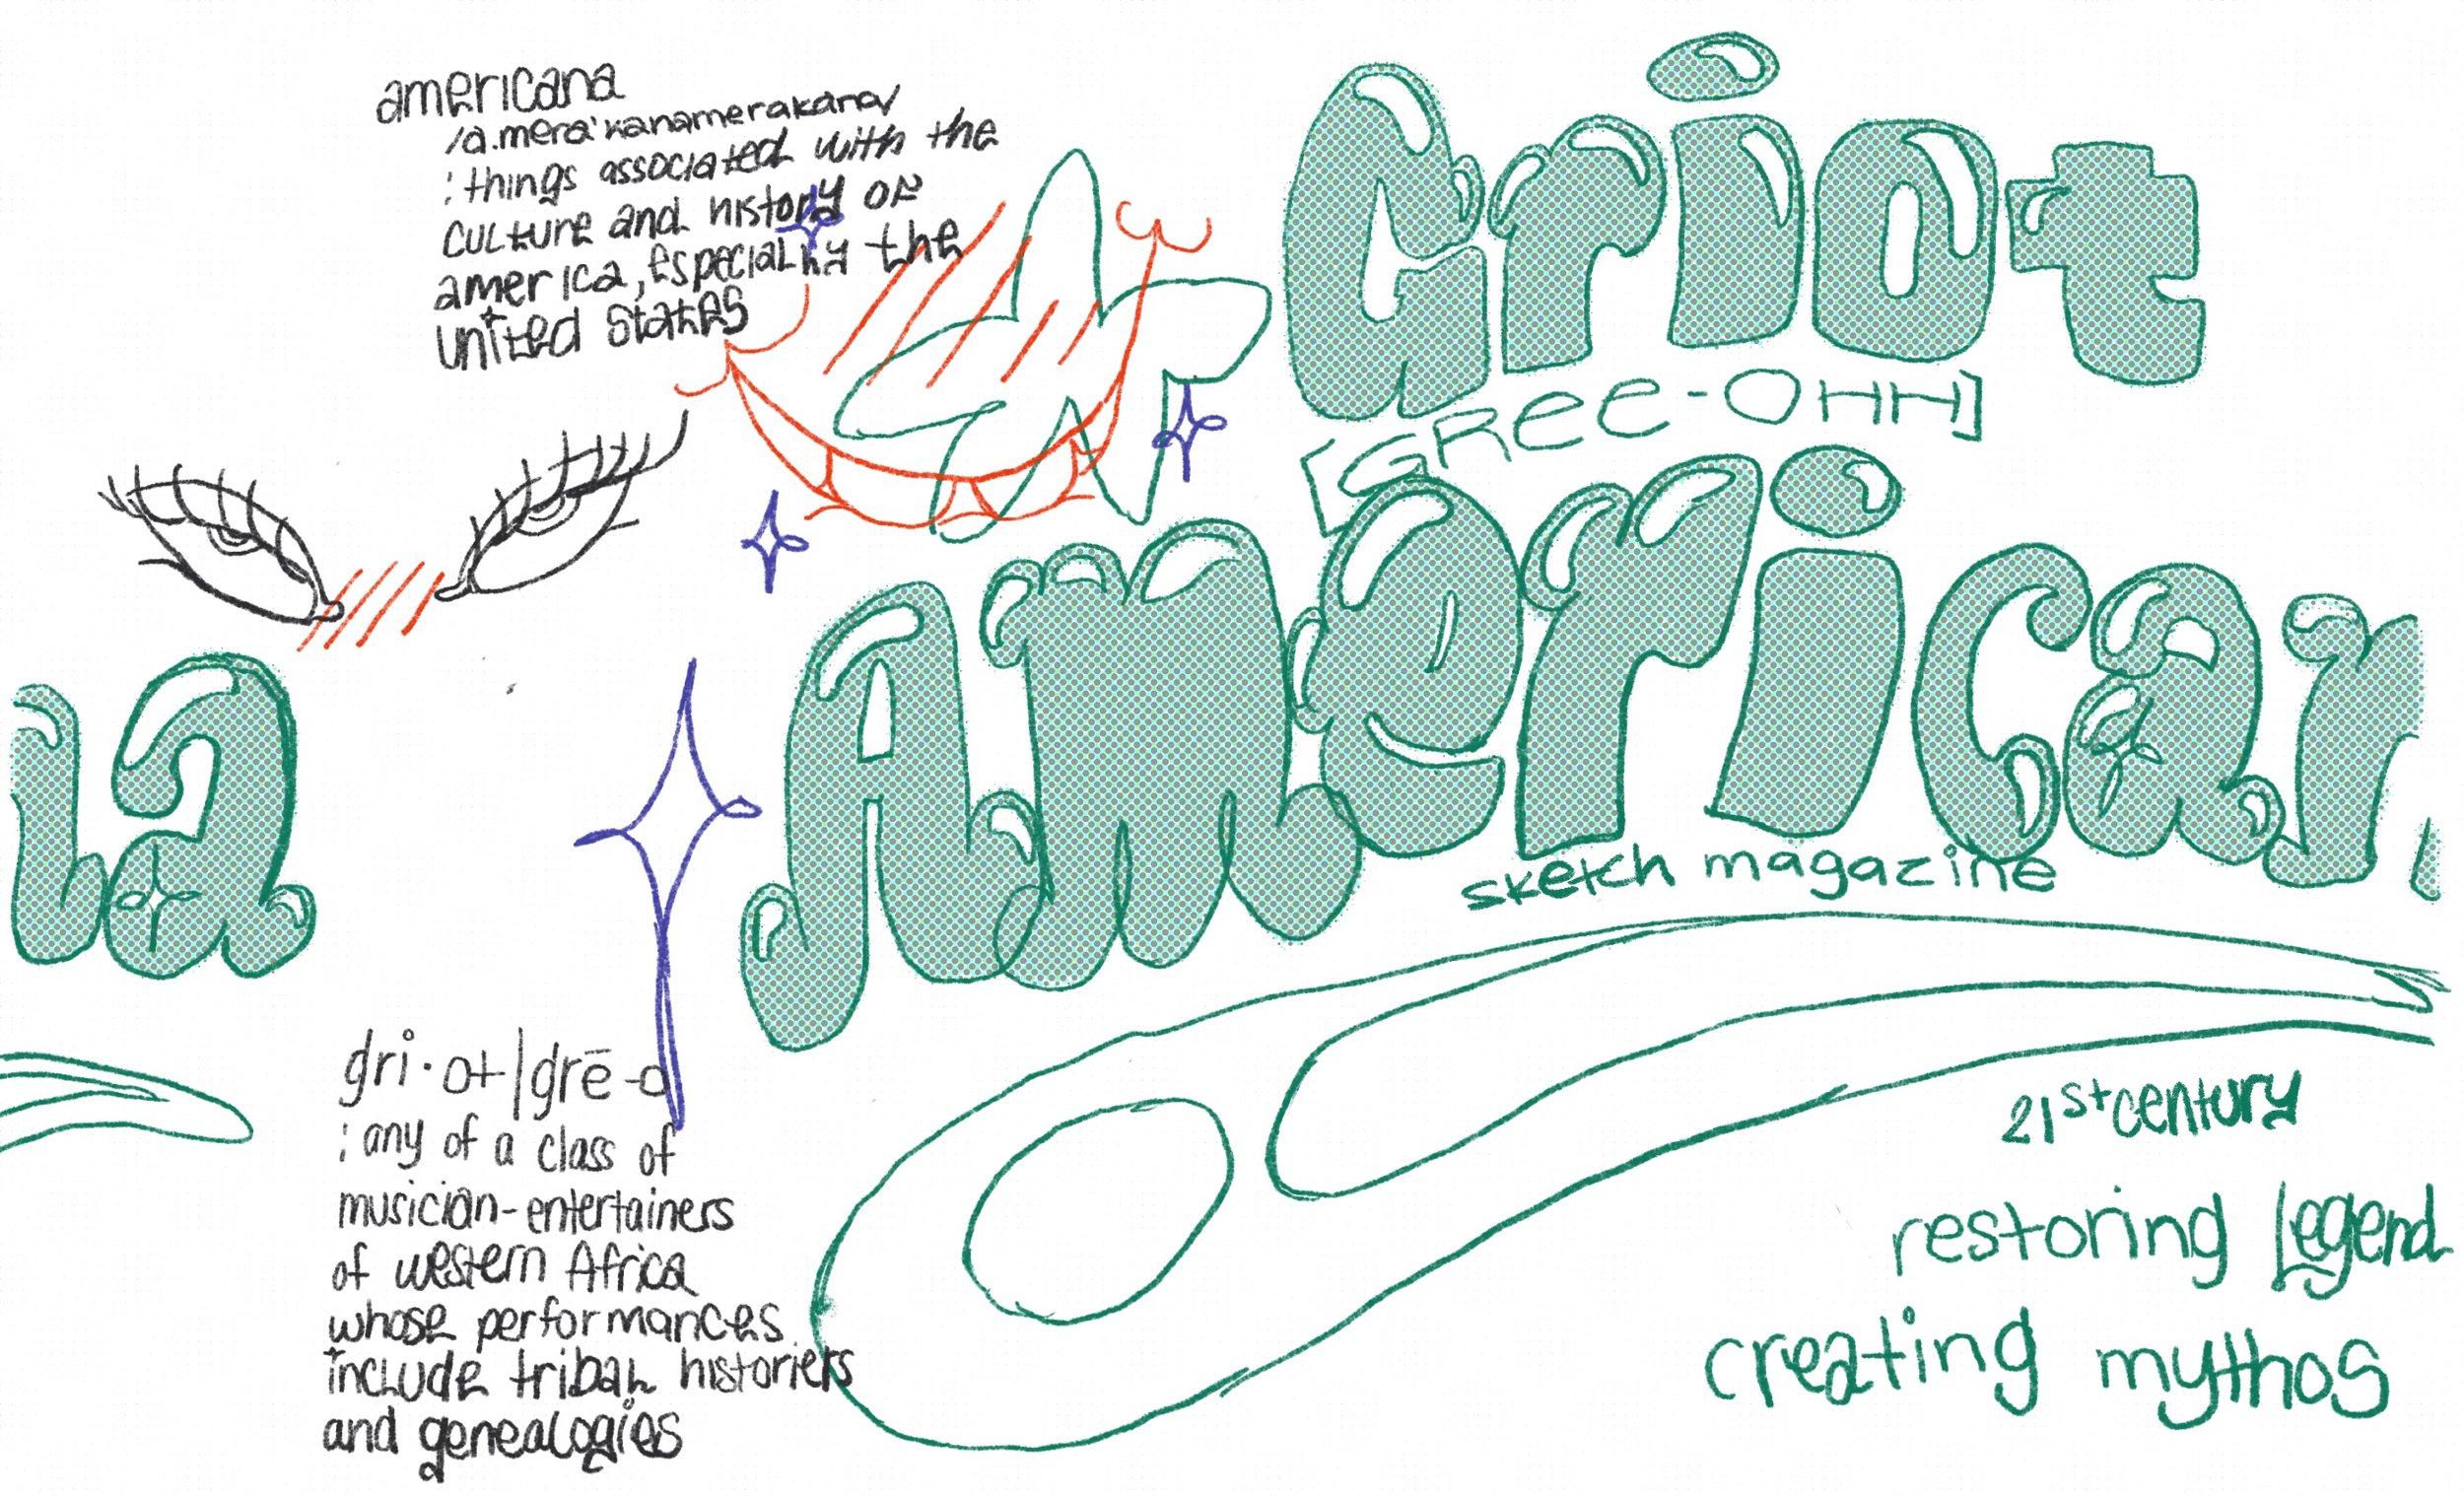 americana
/a.mera'kanamerakana/
: things associated with the
culture and history of
america, especially the
united states
Griot
[GREE-OHH]
American
na
sketch magazine
gri·ot|grē-o
: any of a class of
musician-entertainers
of western Africa
whose performances
include tribal historiers
and genealogies
21st century
restoring legend
creating mythos